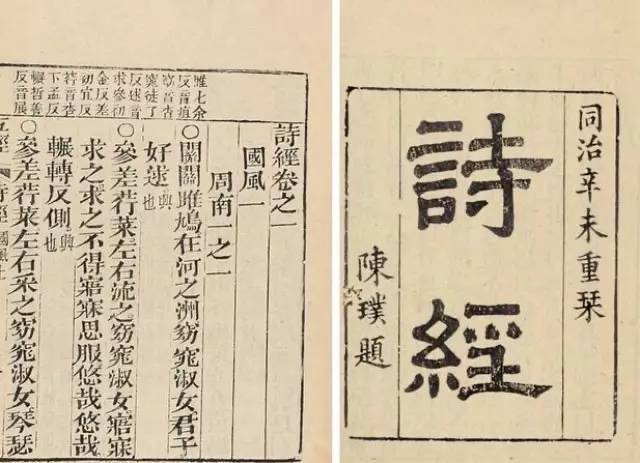 同治辛未重栞
詩經
陳璞題
雎七余
反音疽
窈音杳
窕徒了
反逑音
求參初
金反差
初宜反
荇音杏
下孟反
輾哲善
反音展
詩經卷之一
國風一
周南一之一
○關關雎鳩在河之洲窈窕淑女君子
好逑興也
○參差荇菜左右流之窈窕淑女寤寐
求之求之不得寤寐思服悠哉悠哉
輾轉反側興也
○參差荇菜左右采之窈窕淑女琴瑟